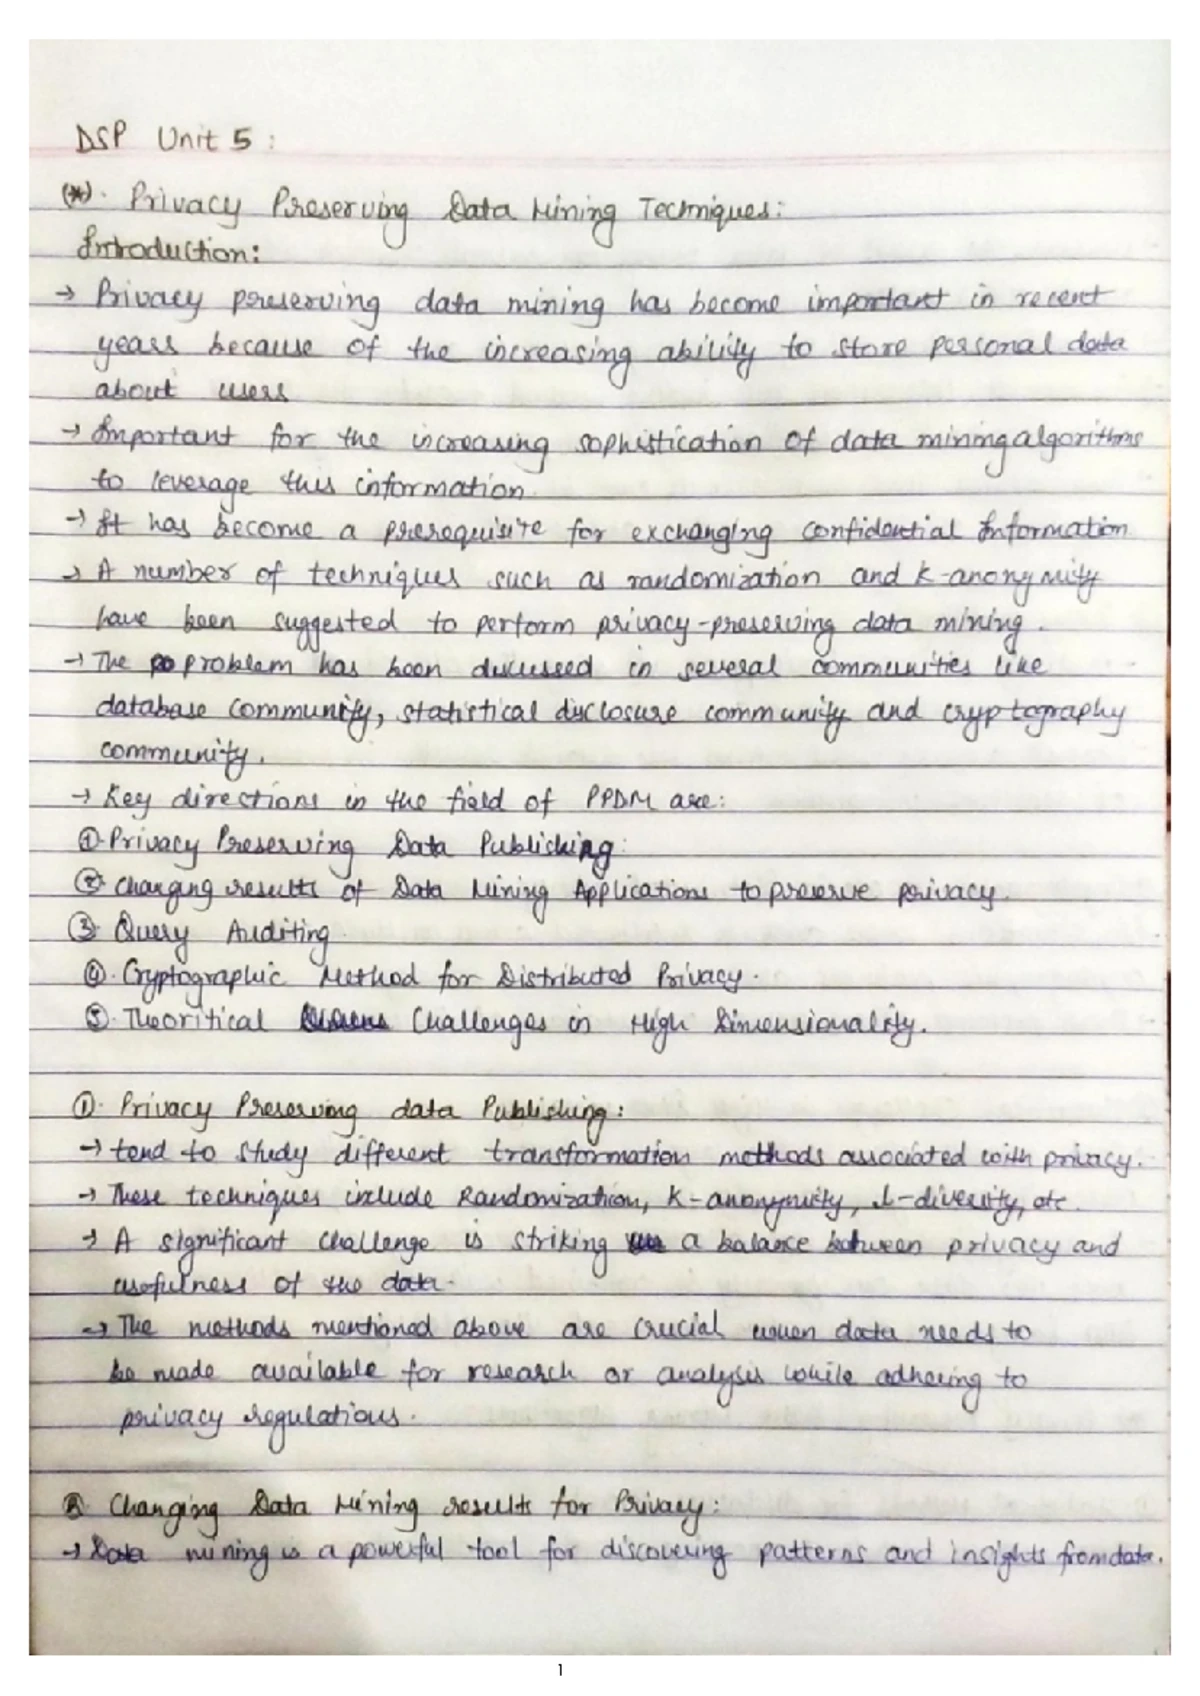 DSP Unit 5:
(*). Privacy Preserving Data Mining Techniques:
Introduction:
→ Privacy preserving data mining has become important in recent
years because of the increasing ability to store personal data
about users
→ Important for the increasing sophistication of data mining algorithms
to leverage this information.
→ It has become a prerequisite for exchanging confidential Information
→ A number of techniques such as randomization and K-anonymity
have been suggested to perform privacy-preserving data mining.
→ The problem has been discussed in several communities like
database community, statistical disclosure community and cryptography
community.
→ Key directions in the field of PPDM are:
①. Privacy Preserving Data Publishing:
② Changing results of Data Mining Applications to preserve privacy.
③ Query Auditing
④. Cryptographic Method for Distributed Privacy.
⑤. Theoritical Challenges in High Dimensionality.
①. Privacy Preserving data Publishing:
→ tend to study different transformation methods associated with privacy.
→ These techniques include Randomization, K-anonymity, L-diversity, etc.
→ A significant challenge is striking a balance between privacy and
usefulness of the data.
→ The methods mentioned above are crucial when data needs to
be made available for research or analysis while adhering to
privacy regulations.
②. Changing Data Mining results for Privacy:
→ Data mining is a powerful tool for discovering patterns and insights from data.
1